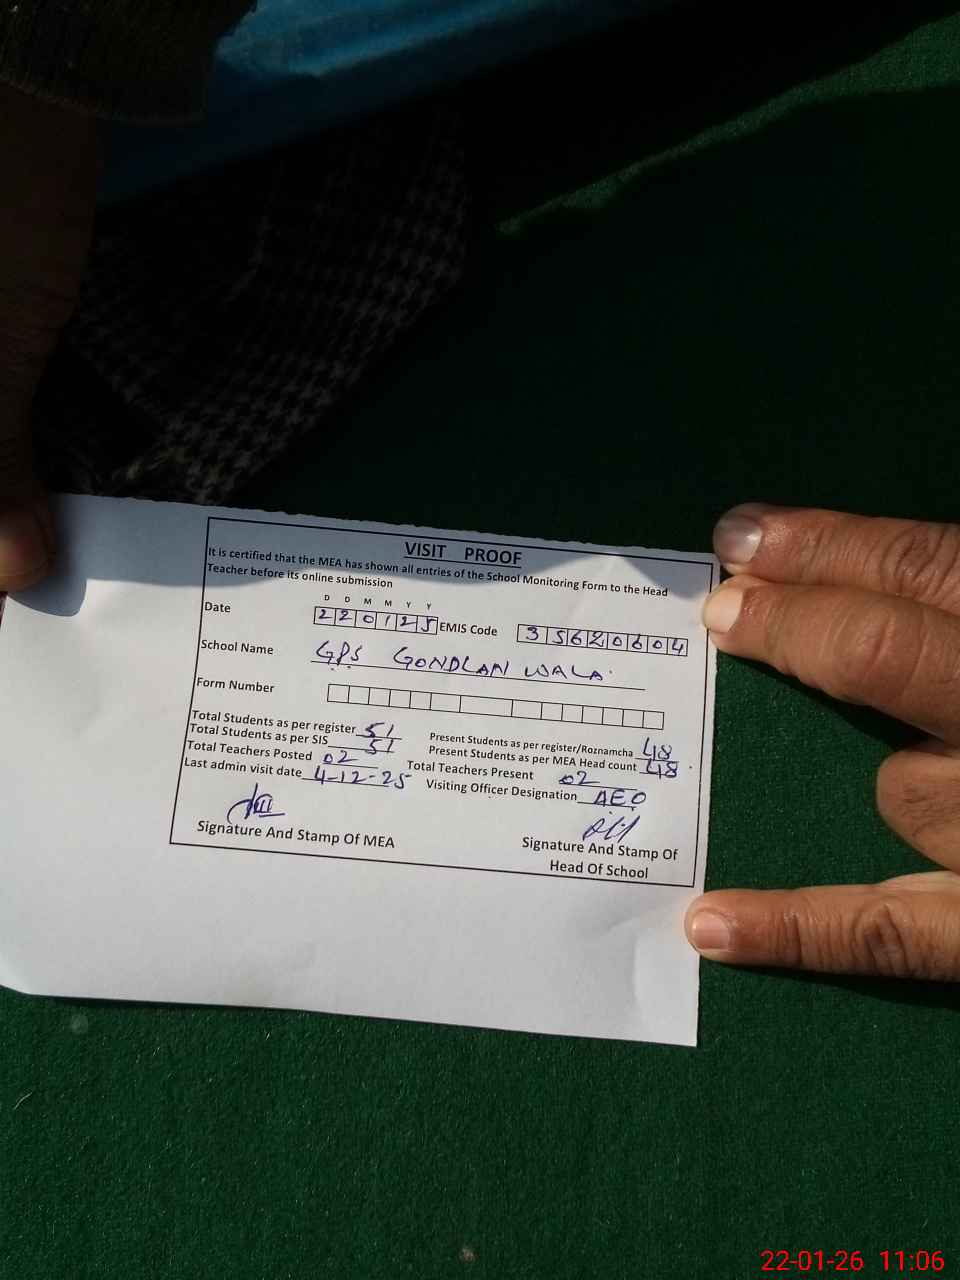 VISIT PROOF
It is certified that the MEA has shown all entries of the School Monitoring Form to the Head
Teacher before its online submission
D D M M Y Y
Date 220125 EMIS Code 35620604
School Name GPS GONDLAN WALA
Form Number
Total Students as per register 51 Present Students as per register/Roznamcha 48
Total Students as per SIS 51 Present Students as per MEA Head count 48
Total Teachers Posted 02 Total Teachers Present 02
Last admin visit date 4-12-25 Visiting Officer Designation AEO
Signature And Stamp Of MEA Signature And Stamp Of
Head Of School
22-01-26 11:06